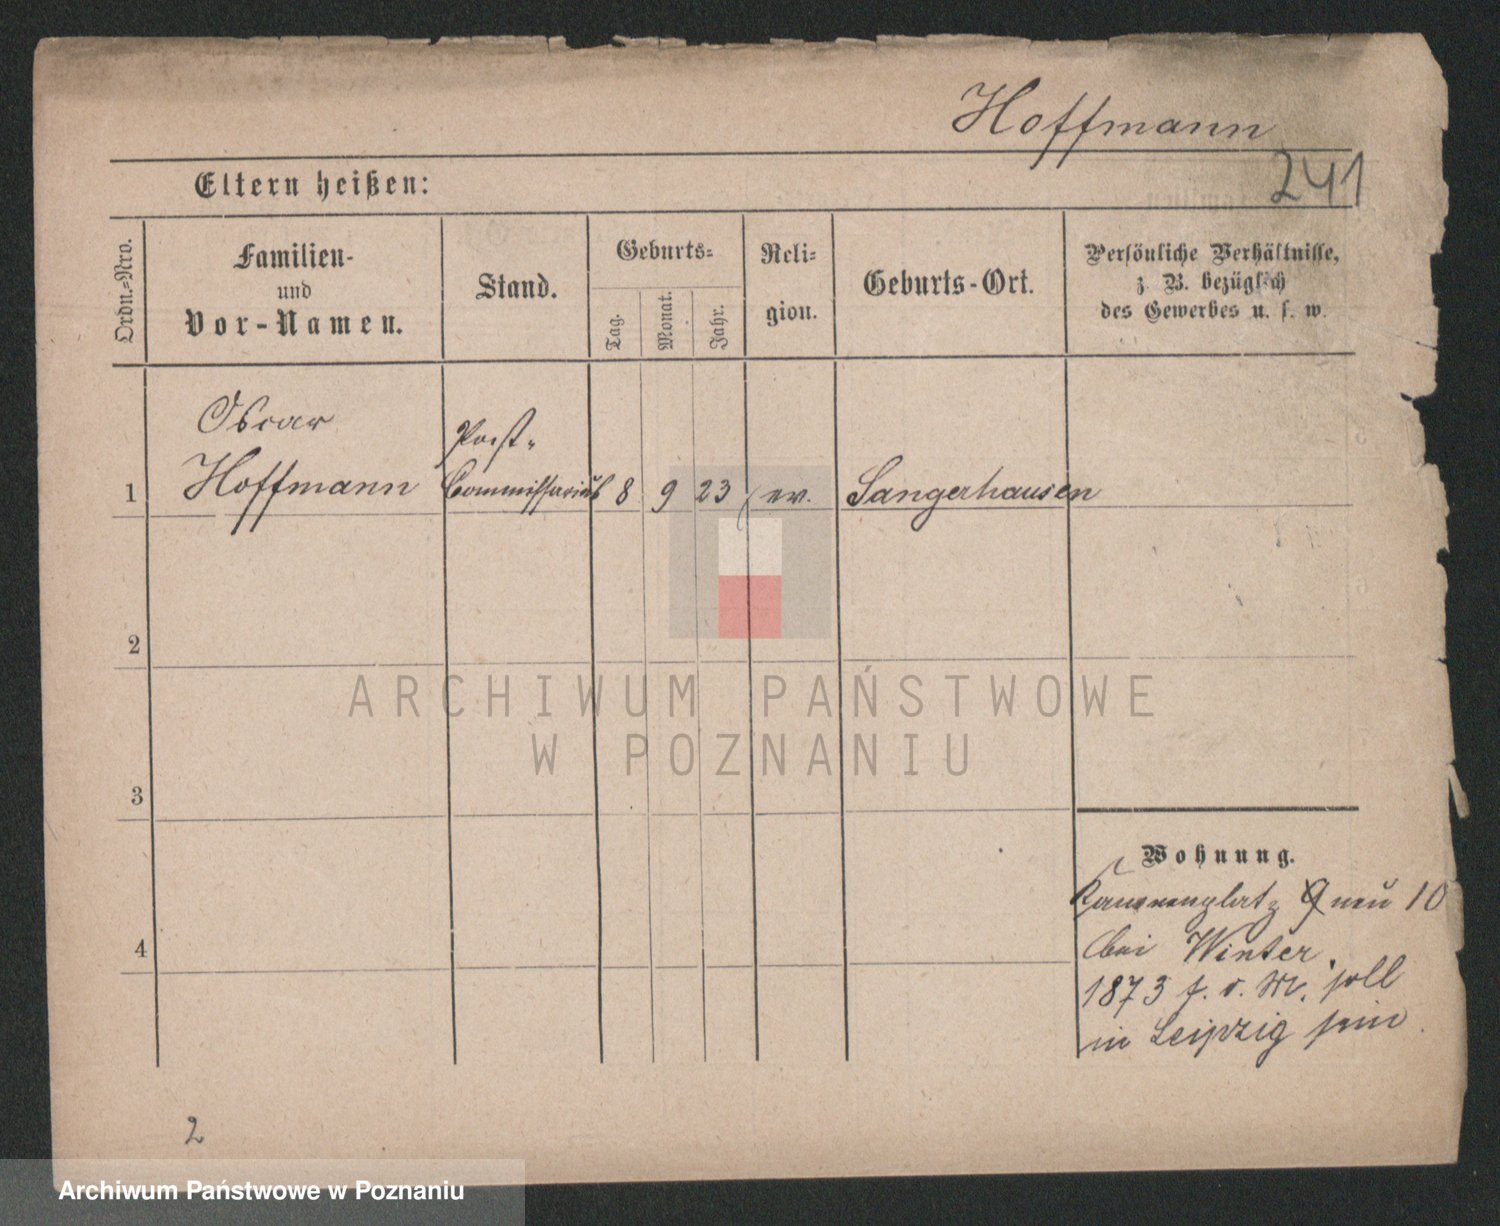 Hoffmann
241
Eltern heißen:
Ordn.=Nro.
Familien-
und
Vor-Namen.
Stand.
Geburts=
Tag.
Monat.
Jahr.
Reli=
gion.
Geburts-Ort.
Persönliche Verhältnisse,
z. B. bezüglich
des Gewerbes u. s. w.
Oscar
Hoffmann
Post-
Commissarius
1
8
9
23
ev.
Sangerhausen
2
3
4
Wohnung.
9 neu 10
bei Winter.
1873 soll
in Leipzig sein
2
ARCHIWUM PAŃSTWOWE
W POZNANIU
Archiwum Państwowe w Poznaniu